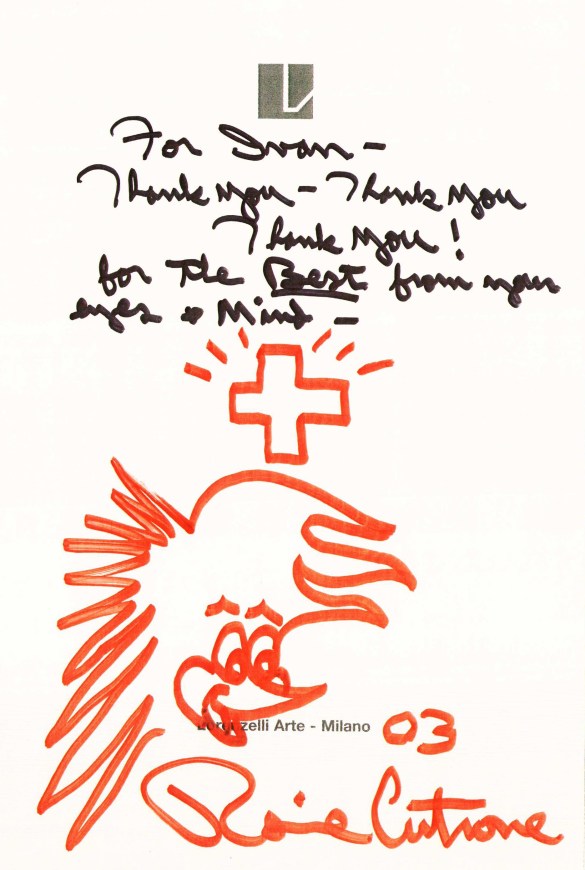 For Ivan -
Thank you - Thank you
Thank you!
for the Best from your
eyes & Mind -
zelli Arte - Milano
03
Ronnie Cutrone